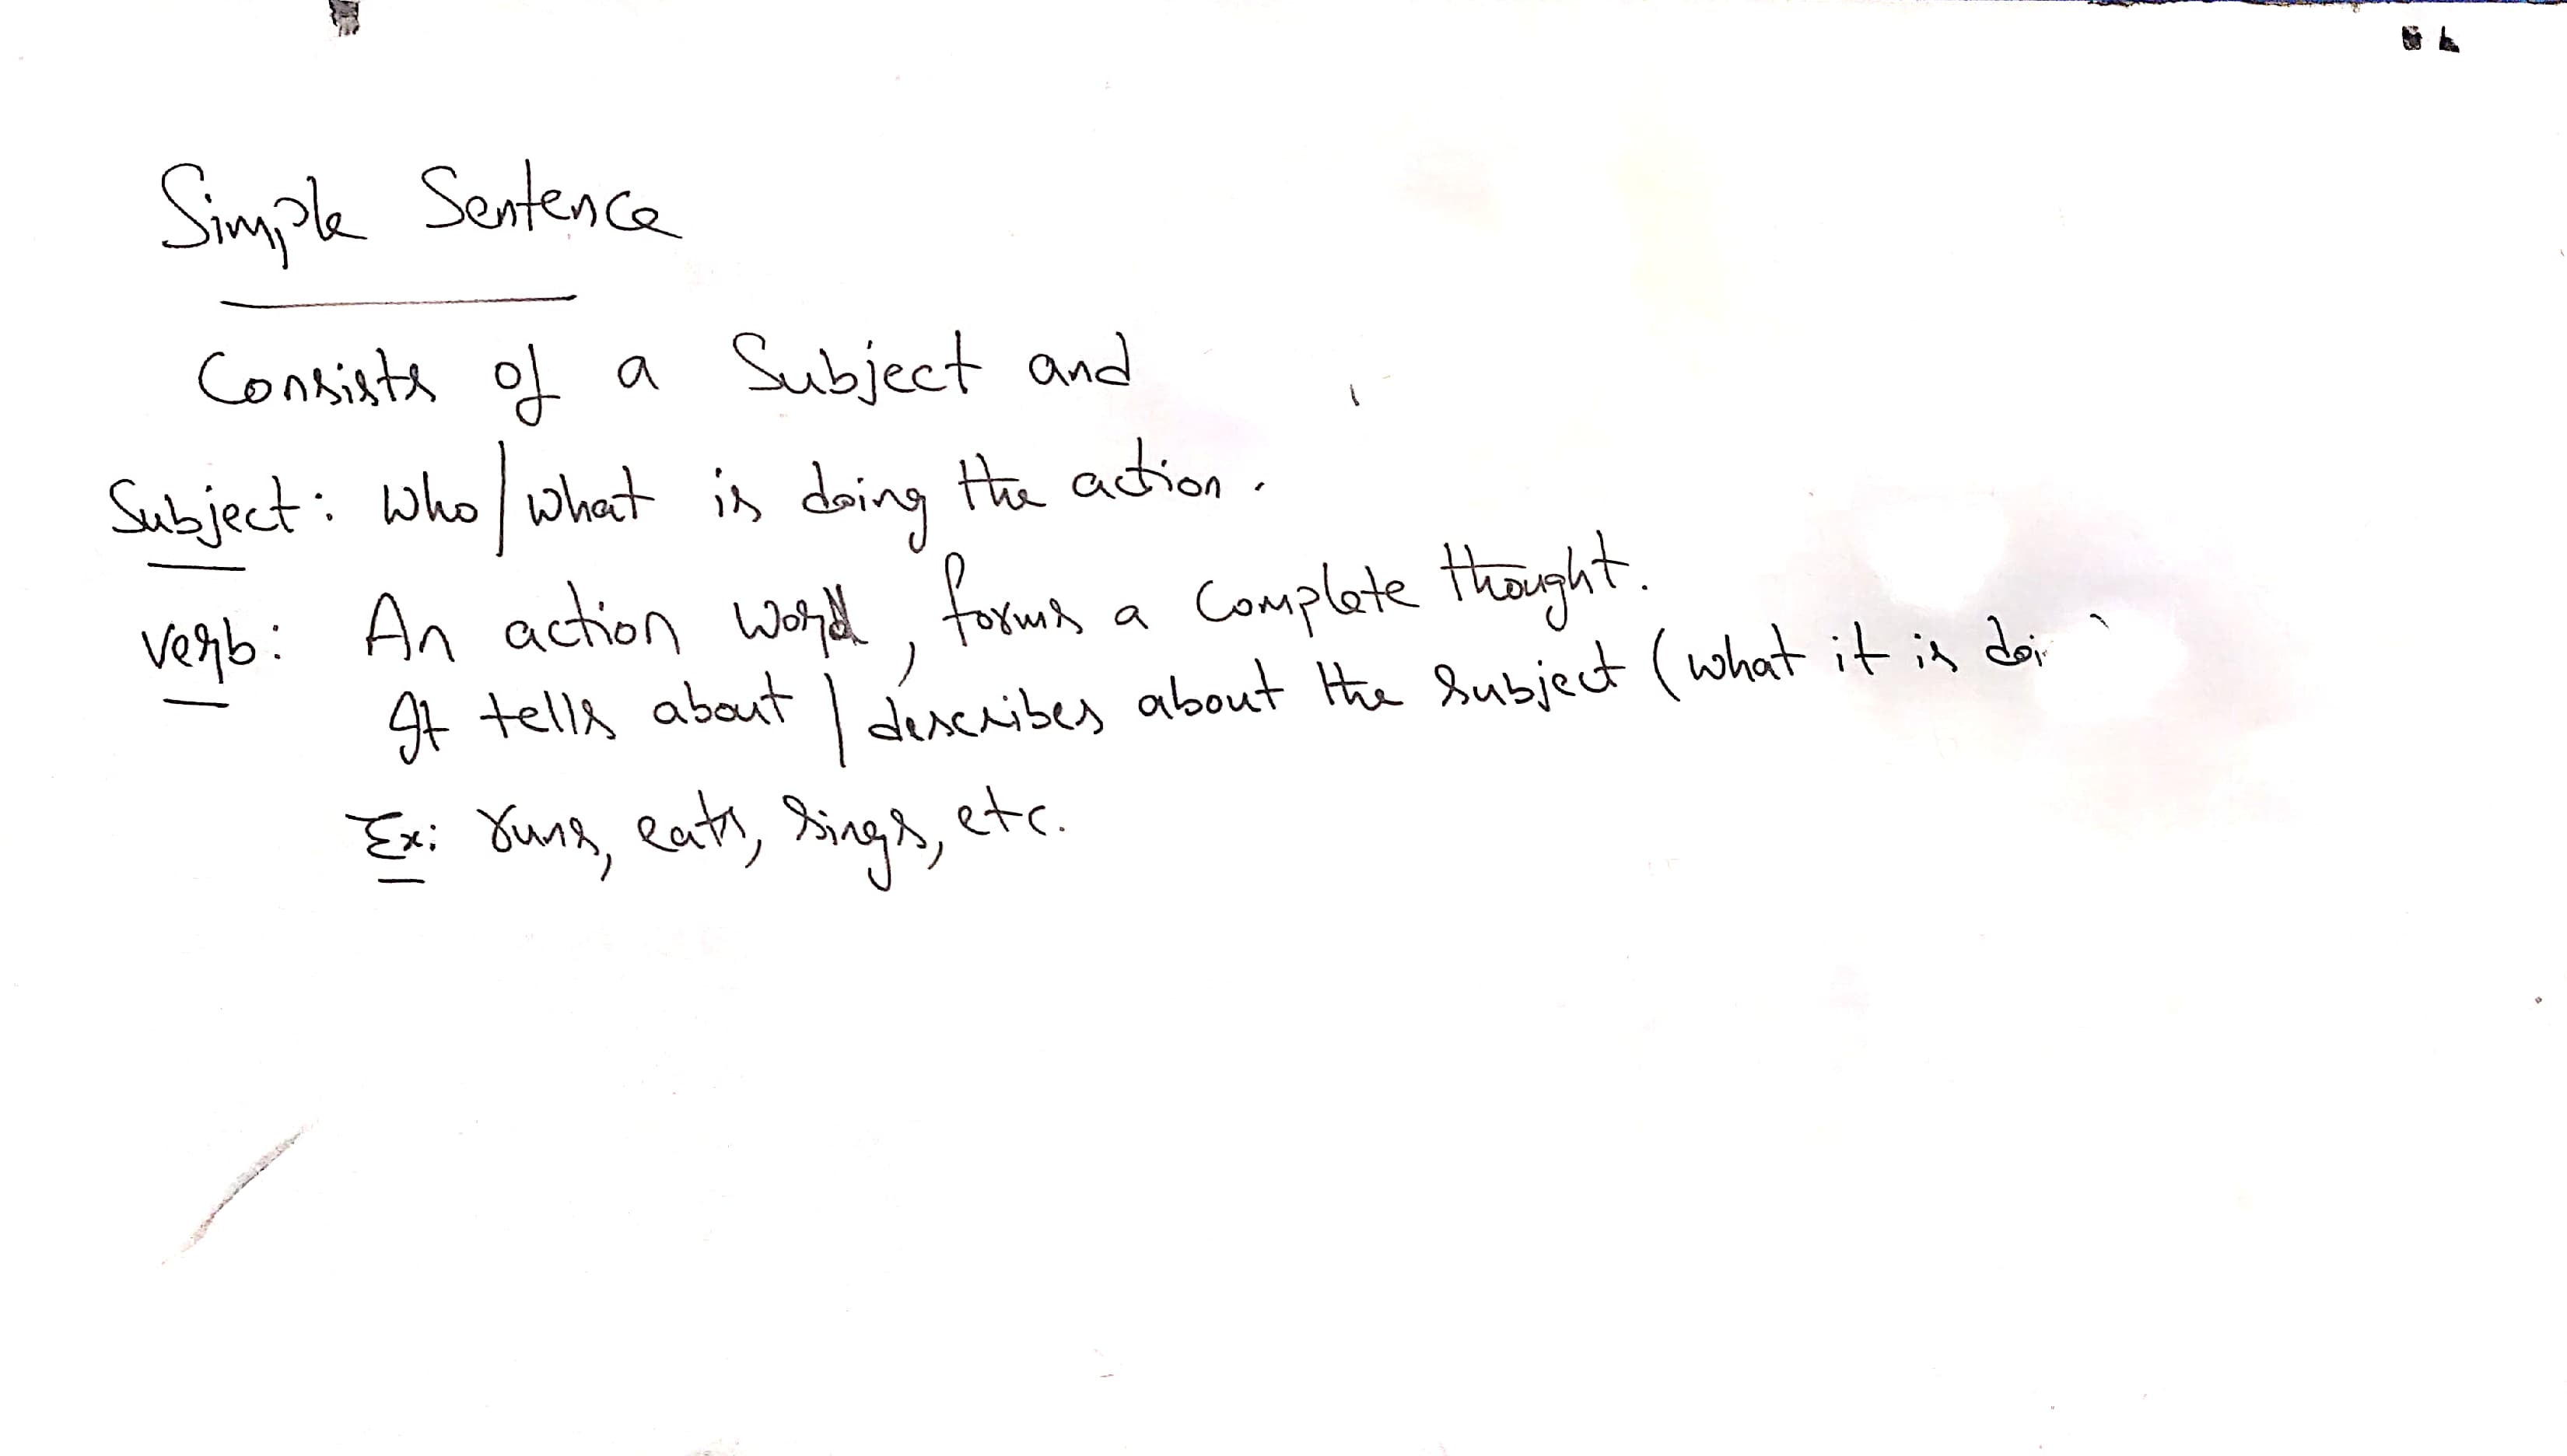 Simple Sentence
Consists of a Subject and
Subject: Who/what is doing the action.
Verb: An action word, forms a complete thought.
It tells about / describes about the subject (what it is
Ex: runs, eats, sings, etc.